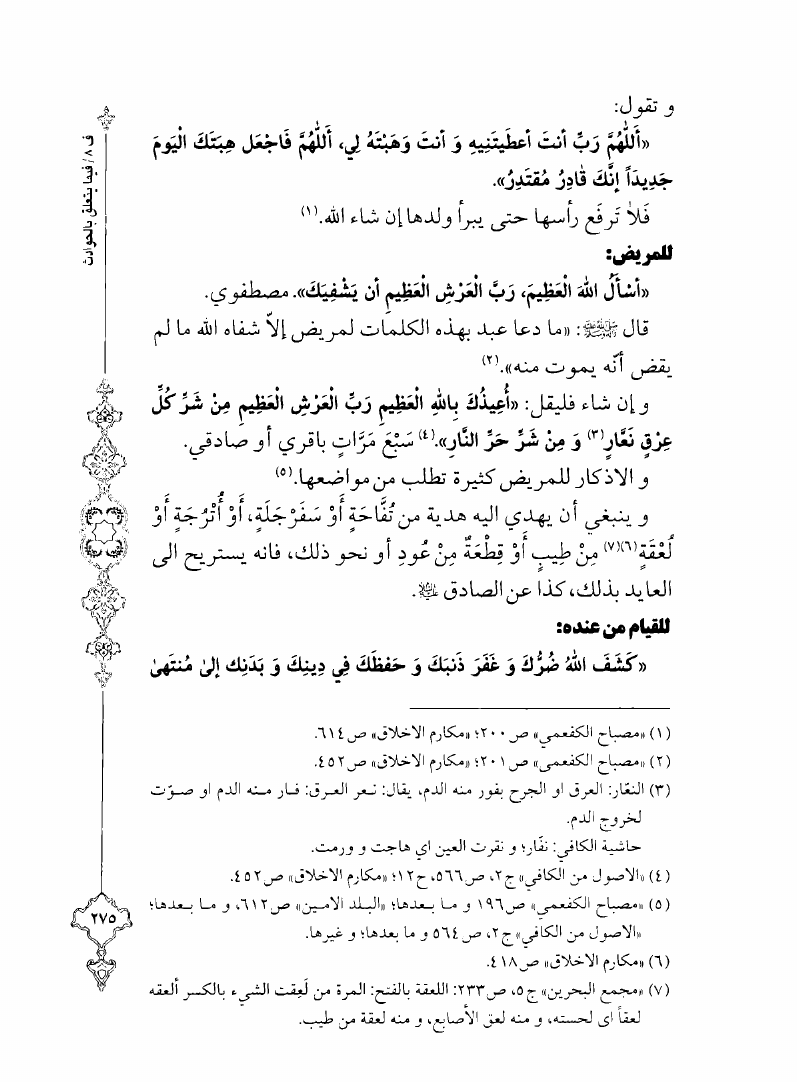 ف ٨ / فيما يتعلق بالحوادث
و تقول:
«أَللّٰهُمَّ رَبِّ أنتَ أعطَيتَنِيهِ وَ أنتَ وَهَبْتَهُ لِي، أَللّٰهُمَّ فَاجْعَل هِبَتَكَ الْيَومَ
جَدِيدَاً إنَّكَ قَادِرُ مُقتَدِرُ».
فَلاٰ تَرفَع رأسها حتى يبرأ ولدها إن شاء الله.(١)
للمريض:
«أَسْأَلُ اللهَ الْعَظِيمَ، رَبَّ الْعَرْشِ الْعَظِيمِ أن يَشْفِيَكَ». مصطفوي.
قال ﷺ: «ما دعا عبد بهذه الكلمات لمريض إلاّ شفاه الله ما لم
يقض أنّه يموت منه».(٢)
و إن شاء فليقل: «أُعِيذُكَ بِاللهِ الْعَظِيمِ رَبِّ الْعَرْشِ الْعَظِيمِ مِنْ شَرِّ كُلِّ
عِرْقٍ نَعَّارٍ(٣) وَ مِنْ شَرِّ حَرِّ النَّارِ».(٤) سَبْعَ مَرَّاتٍ باقري أو صادقي.
و الاذكار للمريض كثيرة تطلب من مواضعها.(٥)
و ينبغي أن يهدي اليه هدية من تُفَّاحَةٍ أَوْ سَفَرْجَلَةٍ، أَوْ أُتْرُجَةٍ أَوْ
لُعْقَةٍ(٦)(٧) مِنْ طِيبٍ أَوْ قِطْعَةٌ مِنْ عُودٍ أو نحو ذلك، فانه يستريح الى
العايد بذلك، كذا عن الصادق ؑ.
للقيام من عنده:
«كَشَفَ اللهُ ضُرُّكَ وَ غَفَرَ ذَنبَكَ وَ حَفظَكَ فِي دِينِكَ وَ بَدَنِك إلىٰ مُنتَهىٰ
(١) «مصباح الكفعمي» ص٢٠٠؛ «مكارم الاخلاق» ص٦١٤.
(٢) «مصباح الكفعمي» ص٢٠١؛ «مكارم الاخلاق» ص٤٥٢.
(٣) النعّار: العرق او الجرح بفور منه الدم، يقال: نعر العرق: فار منه الدم او صوّت
لخروج الدم.
حاشية الكافي: نفّار؛ و نقرت العين اي هاجت و ورمت.
(٤) «الاصول من الكافي» ج٢، ص٥٦٦، ح١٢؛ «مكارم الاخلاق» ص٤٥٢.
(٥) «مصباح الكفعمي» ص١٩٦ و ما بعدها؛ «البلد الامين» ص٦١٢، و ما بعدها؛
«الاصول من الكافي» ج٢، ص٥٦٤ و ما بعدها؛ و غيرها.
(٦) «مكارم الاخلاق» ص٤١٨.
(٧) «مجمع البحرين» ج٥، ص٢٣٣: اللعقة بالفتح: المرة من لَعِقت الشيء بالكسر ألعقه
لعقاً اى لحسته، و منه لعق الأصابع، و منه لعقة من طيب.
٢٧٥